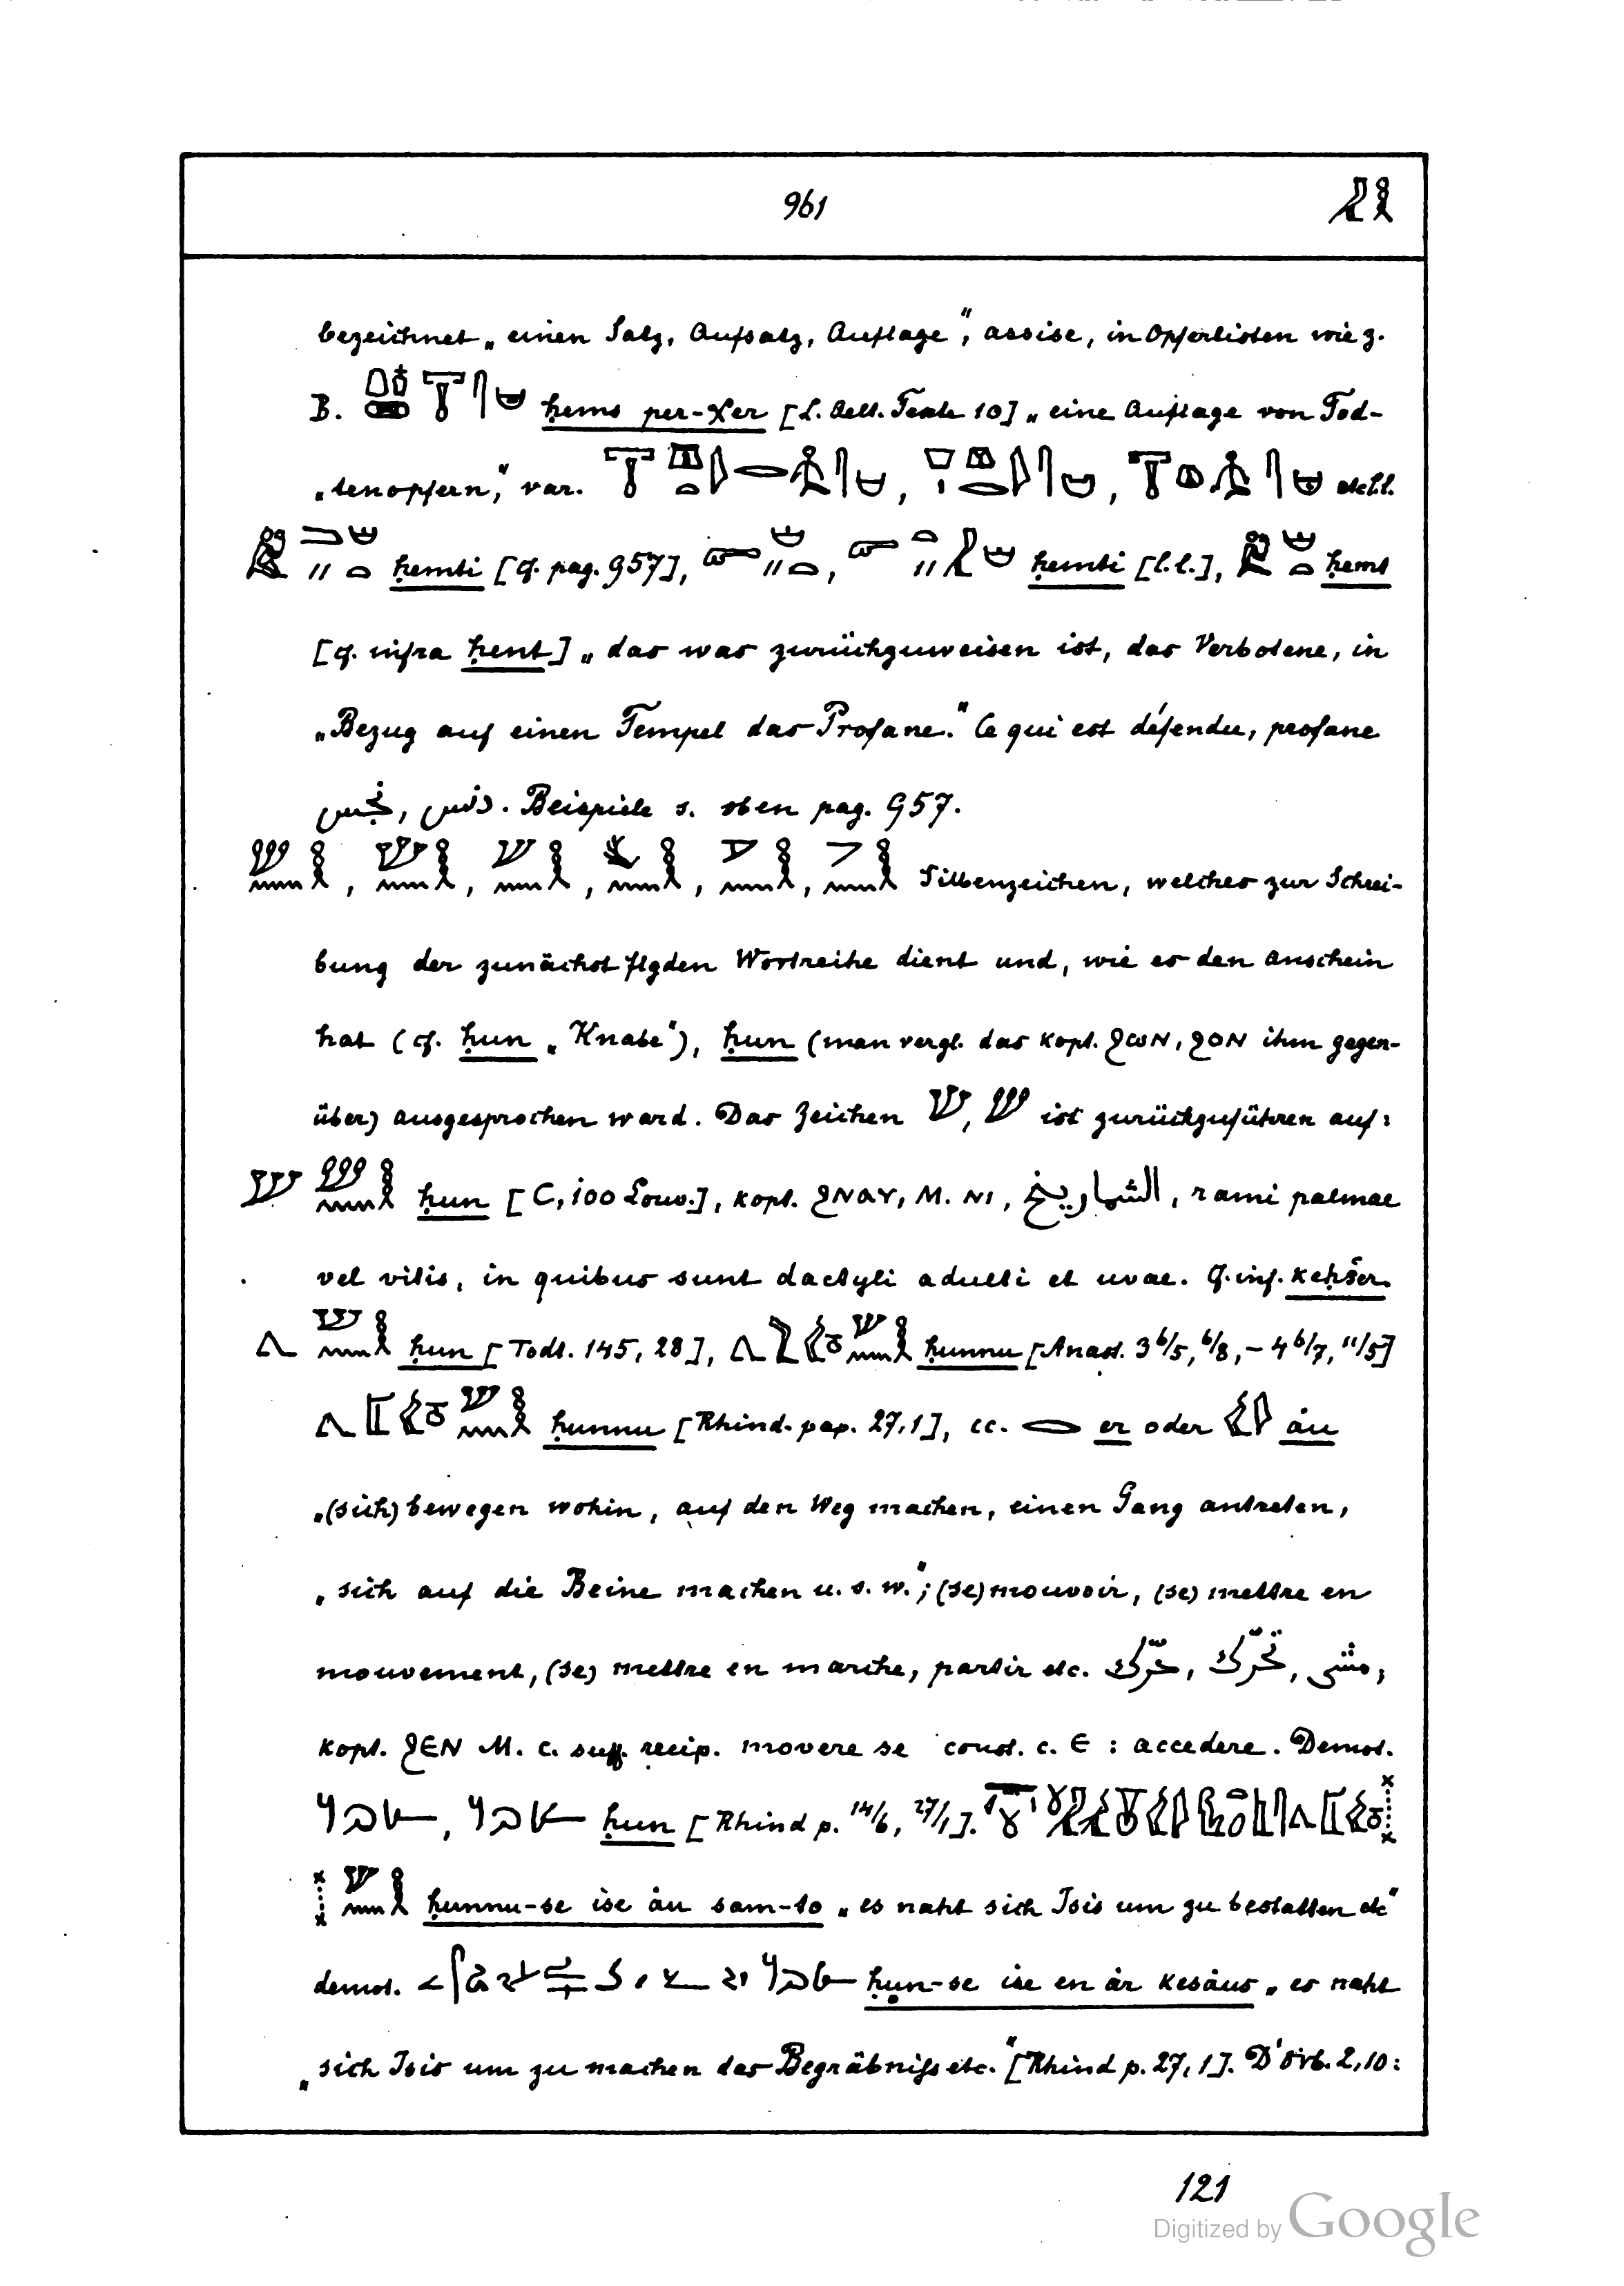 961
bezeichnet „einen Satz, Aufsatz, Auflage“, assise, in Opferlisten wie z.
B. ḥems per-χer [L. Aelt. Texte 10] „eine Auflage von Tod-
„tenopfern,“ var. , , etc.l.l.
ḥemti [cf. pag. 957], , ḥemti [l.l.], ḥemt
[cf. infra ḥent] „das was zurückzuweisen ist, das Verbotene, in
„Bezug auf einen Tempel das Profane.“ Ce qui est défendu, profane
دنس, نجس. Beispiele s. oben pag. 957.
, , , , , Silbenzeichen, welches zur Schrei-
bung der zunächst flgden Wortreihe dient und, wie es den Anschein
hat (cf. ḥun „Knabe“), ḥun (man vergl. das kopt. ϩωⲛ, ϩⲟⲛ ihm gegen-
über) ausgesprochen ward. Das Zeichen , ist zurückzuführen auf:
ḥun [C, 100 Louv.], kopt. ϩⲛⲁⲩ, M. ⲛⲓ, الشماريخ, rami palmae
vel vitis, in quibus sunt dactyli adulti et uvae. Cf. inf. keḥšer.
ḥun [Todt. 145, 28], ḥunnu [Anast. 3 6/5, 6/8, – 4 6/7, 11/5]
ḥunnu [Rhind. pap. 27,1], cc. er oder åu
„(sich) bewegen wohin, auf den Weg machen, einen Gang antreten,
„sich auf die Beine machen u. s. w.“; (se) mouvoir, (se) mettre en
mouvement, (se) mettre en marche, partir etc. حرّك, تحرّك, مشى,
kopt. ϩⲉⲛ M. c. suff. recip. movere se const. c. ⲉ : accedere. Demot.
, ḥun [Rhind p. 14/6, 27/1].
ḥunnu-se ise åu sam-to „es naht sich Isis um zu bestatten etc“
demot. ḥun-se ise en år kesåus „es naht
„sich Isis um zu machen das Begräbniss etc.“ [Rhind p. 27,1]. D'Orb. 2,10:
121
Digitized by Google